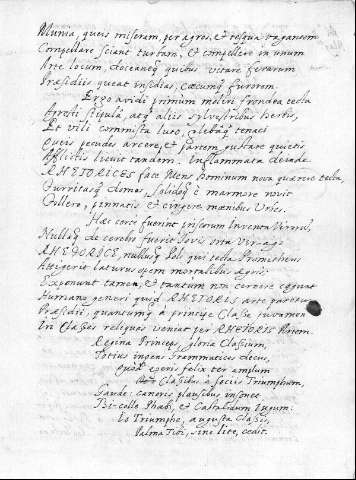 Munia, queis miseram, per agros, & tesqua vagantem
Compellare sciant turbam, & compellere in unum
Arte locum, doceantq quibus vitare ferarum
Præsidiis queat insidias, cæcumq furorem.
Ergo avidi primum moliri frondea tecta
Agresti stipulâ, atq aliis sylvestribus herbis,
Et vili commista luto, glebâq tenaci
Queis pecudes arcere, & partem gustare quietis
Afflictis licuit tandem. Inflammata deinde
RHETORICES face Mens hominum nova quærere tecta,
Turritasq domos, solidoq è marmore novit
Tollere, pinnatis & cingere mœnibus Urbes.
Hæc certè fuerint priscorum Inventa Virorum,
Nullaq de cerebro fuerit Iovis orta Virago
RHETORICE, nullusq Poli qui tecta Prometheus
Attigerit laturus opem mortalibus ægris:
Exponunt tamen, & tantum non cernere cogunt
Humano generi quid RHETORIS arte
Præsidii, quantumq à principe Classe juvamen
In Classes reliquas veniat per RHETORIS Artem.
Regina Princeps, gloria Classium,
Totius ingens Grammatices decus,
Quæ egeris felix ter amplum
Classibus è sociis Triumphum,
Gaude: canoris plausibus insonet
Bi-collo Phœbi, & Castalidum Iugum:
Io Triumphe, augusta Classis,
Palma Tibi, sine lite, cedit.